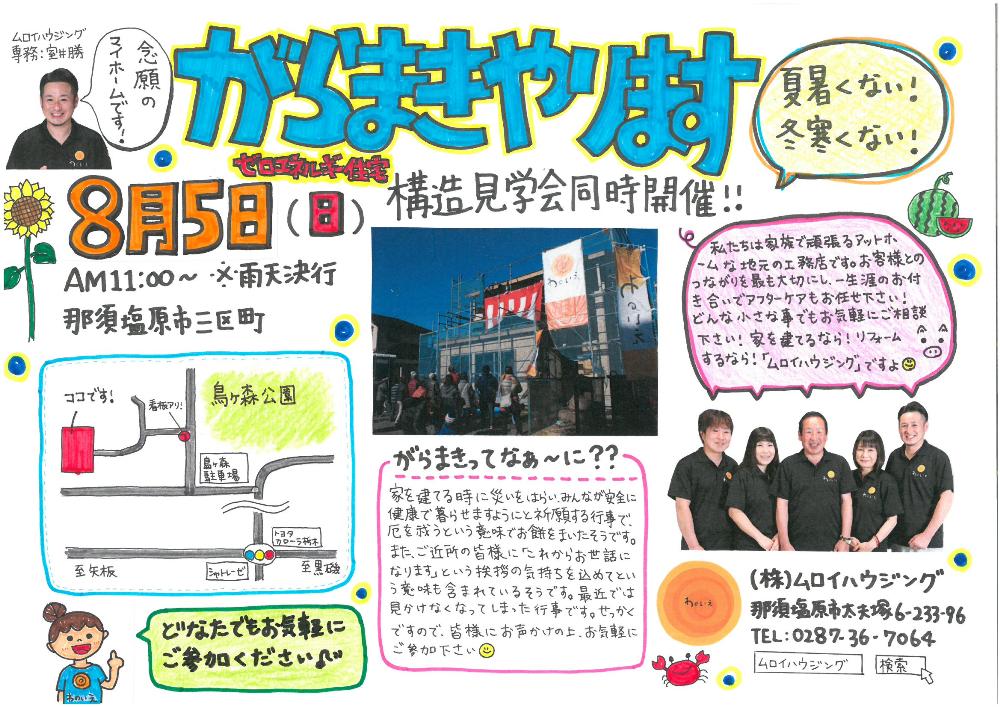 ムロイハウジング
専務:室井勝
念願の
マイホームです!
がらまきやります
夏暑くない!
冬寒くない!
ゼロエネルギー住宅
8月5日(日)
構造見学会同時開催!!
AM11:00~ ※雨天決行
那須塩原市三区町
私たちは家族で頑張るアットホ
ームな地元の工務店です。お客様との
つながりを最も大切にし、一生涯のお付
き合いでアフターケアもお任せ下さい!
どんな小さな事でもお気軽にご相談
下さい! 家を建てるなら!リフォーム
するなら!「ムロイハウジング」ですよ
わのいえ
わのいえ
ココです!
看板アリ!
烏ヶ森公園
烏ヶ森
駐車場
トヨタ
カローラ栃木
シャトレーゼ
至矢板
至黒磯
がらまきってなぁ~に??
家を建てる時に災いをはらい、みんなが安全に
健康で暮らせますようにと祈願する行事で、
厄を祓うという意味でお餅をまいたそうです。
また、ご近所の皆様に「これからお世話に
なります」という挨拶の気持ちを込めてとい
う意味も含まれているそうです。最近では
見かけなくなってしまった行事です。せっかく
ですので、皆様にお声かけの上、お気軽に
ご参加下さい
どなたでもお気軽に
ご参加ください♪
わのいえ
わのいえ
(株)ムロイハウジング
那須塩原市太夫塚6-233-96
TEL:0287-36-7064
ムロイハウジング 検索